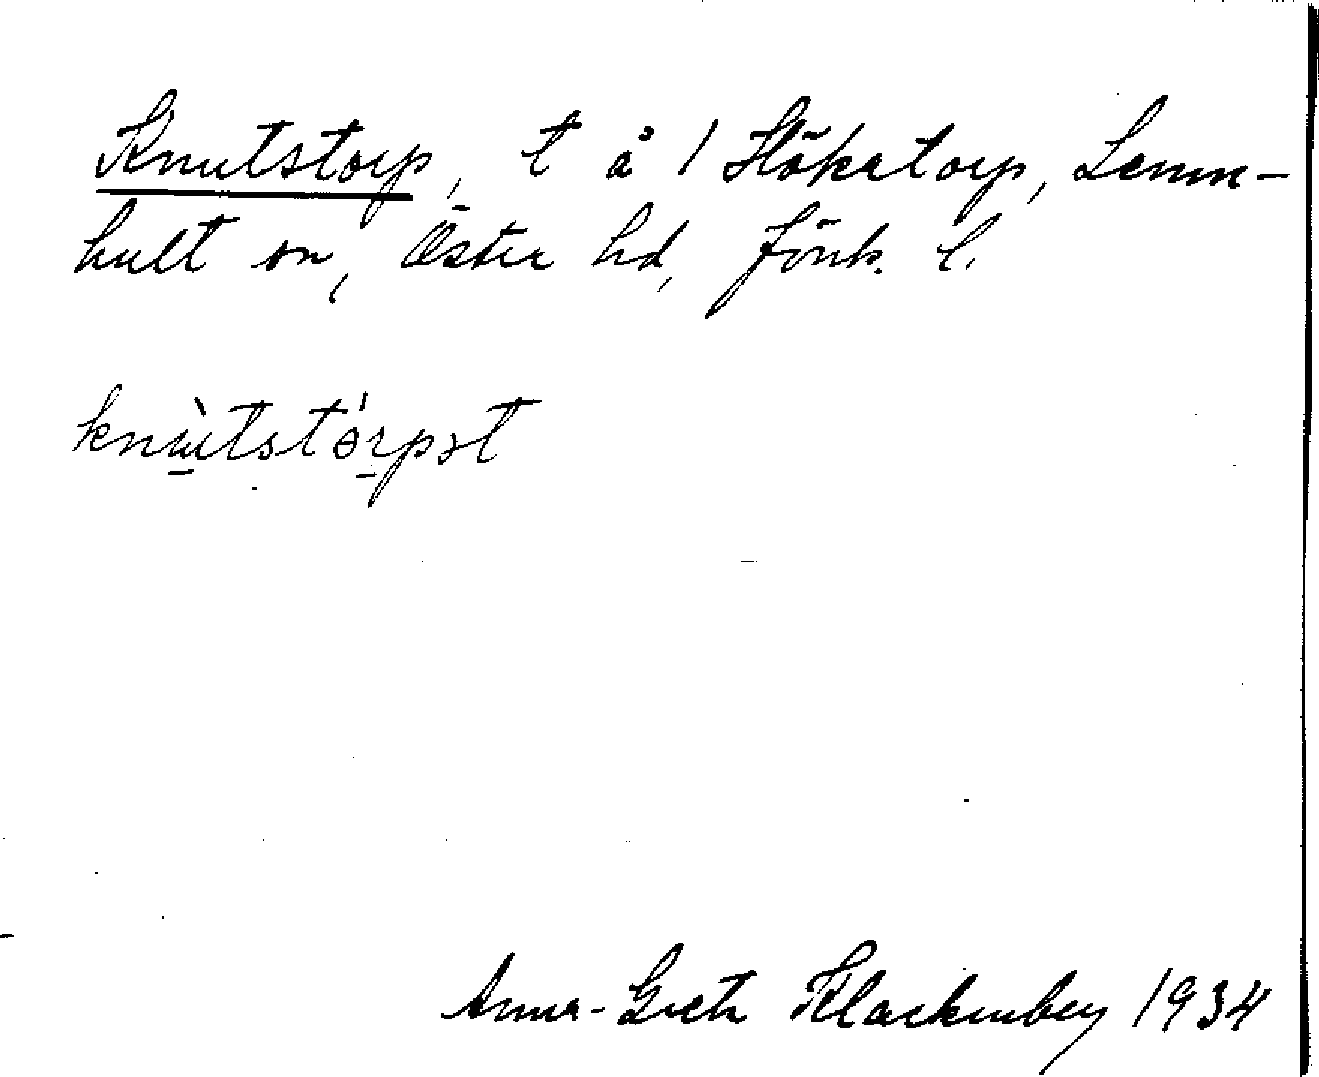 Knutstorp, t å 1 Hökatorp, Lemn-
hult sn, Öster hd, Jönk. l.
knùtstórpət
Anna-Greta Klackenberg 1934